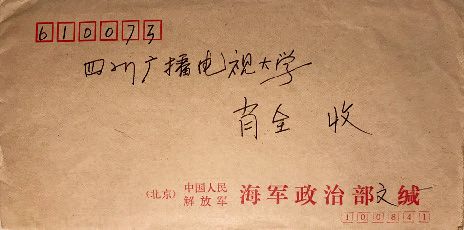 610073
四川广播电视大学
肖全 收
(北京) 中国人民解放军 海军政治部文缄
100841